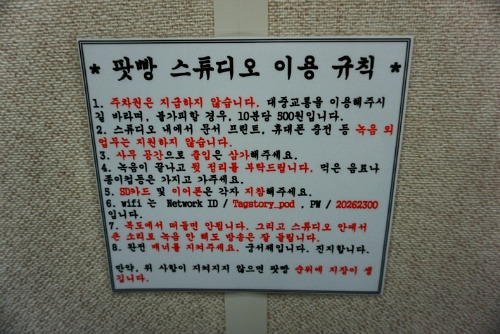 * 팟빵 스튜디오 이용 규칙 *
1. 주차권은 지급하지 않습니다. 대중교통을 이용해주시
길 바라며, 불가피할 경우, 10분당 500원입니다.
2. 스튜디오 내에서 문서 프린트, 휴대폰 충전 등 녹음 외
업무는 지원하지 않습니다.
3. 사무 공간으로 출입은 삼가해주세요.
4. 녹음이 끝나고 뒷 정리를 부탁드립니다. 먹은 음료나
종이컵등은 가지고 가주세요.
5. SD카드 및 이어폰은 각자 지참해주세요.
6. wifi 는 Network ID / Tagstory_pod , PW / 20262300
입니다.
7. 복도에서 떠들면 안됩니다. 그리고 스튜디오 안에서
큰 소리로 녹음 안 해도 방송은 잘 들립니다.
8. 완전 매너를 지켜주세요. 궁서체입니다. 진지합니다.
만약, 위 사항이 지켜지지 않으면 팟빵 순위에 지장이 생
깁니다.